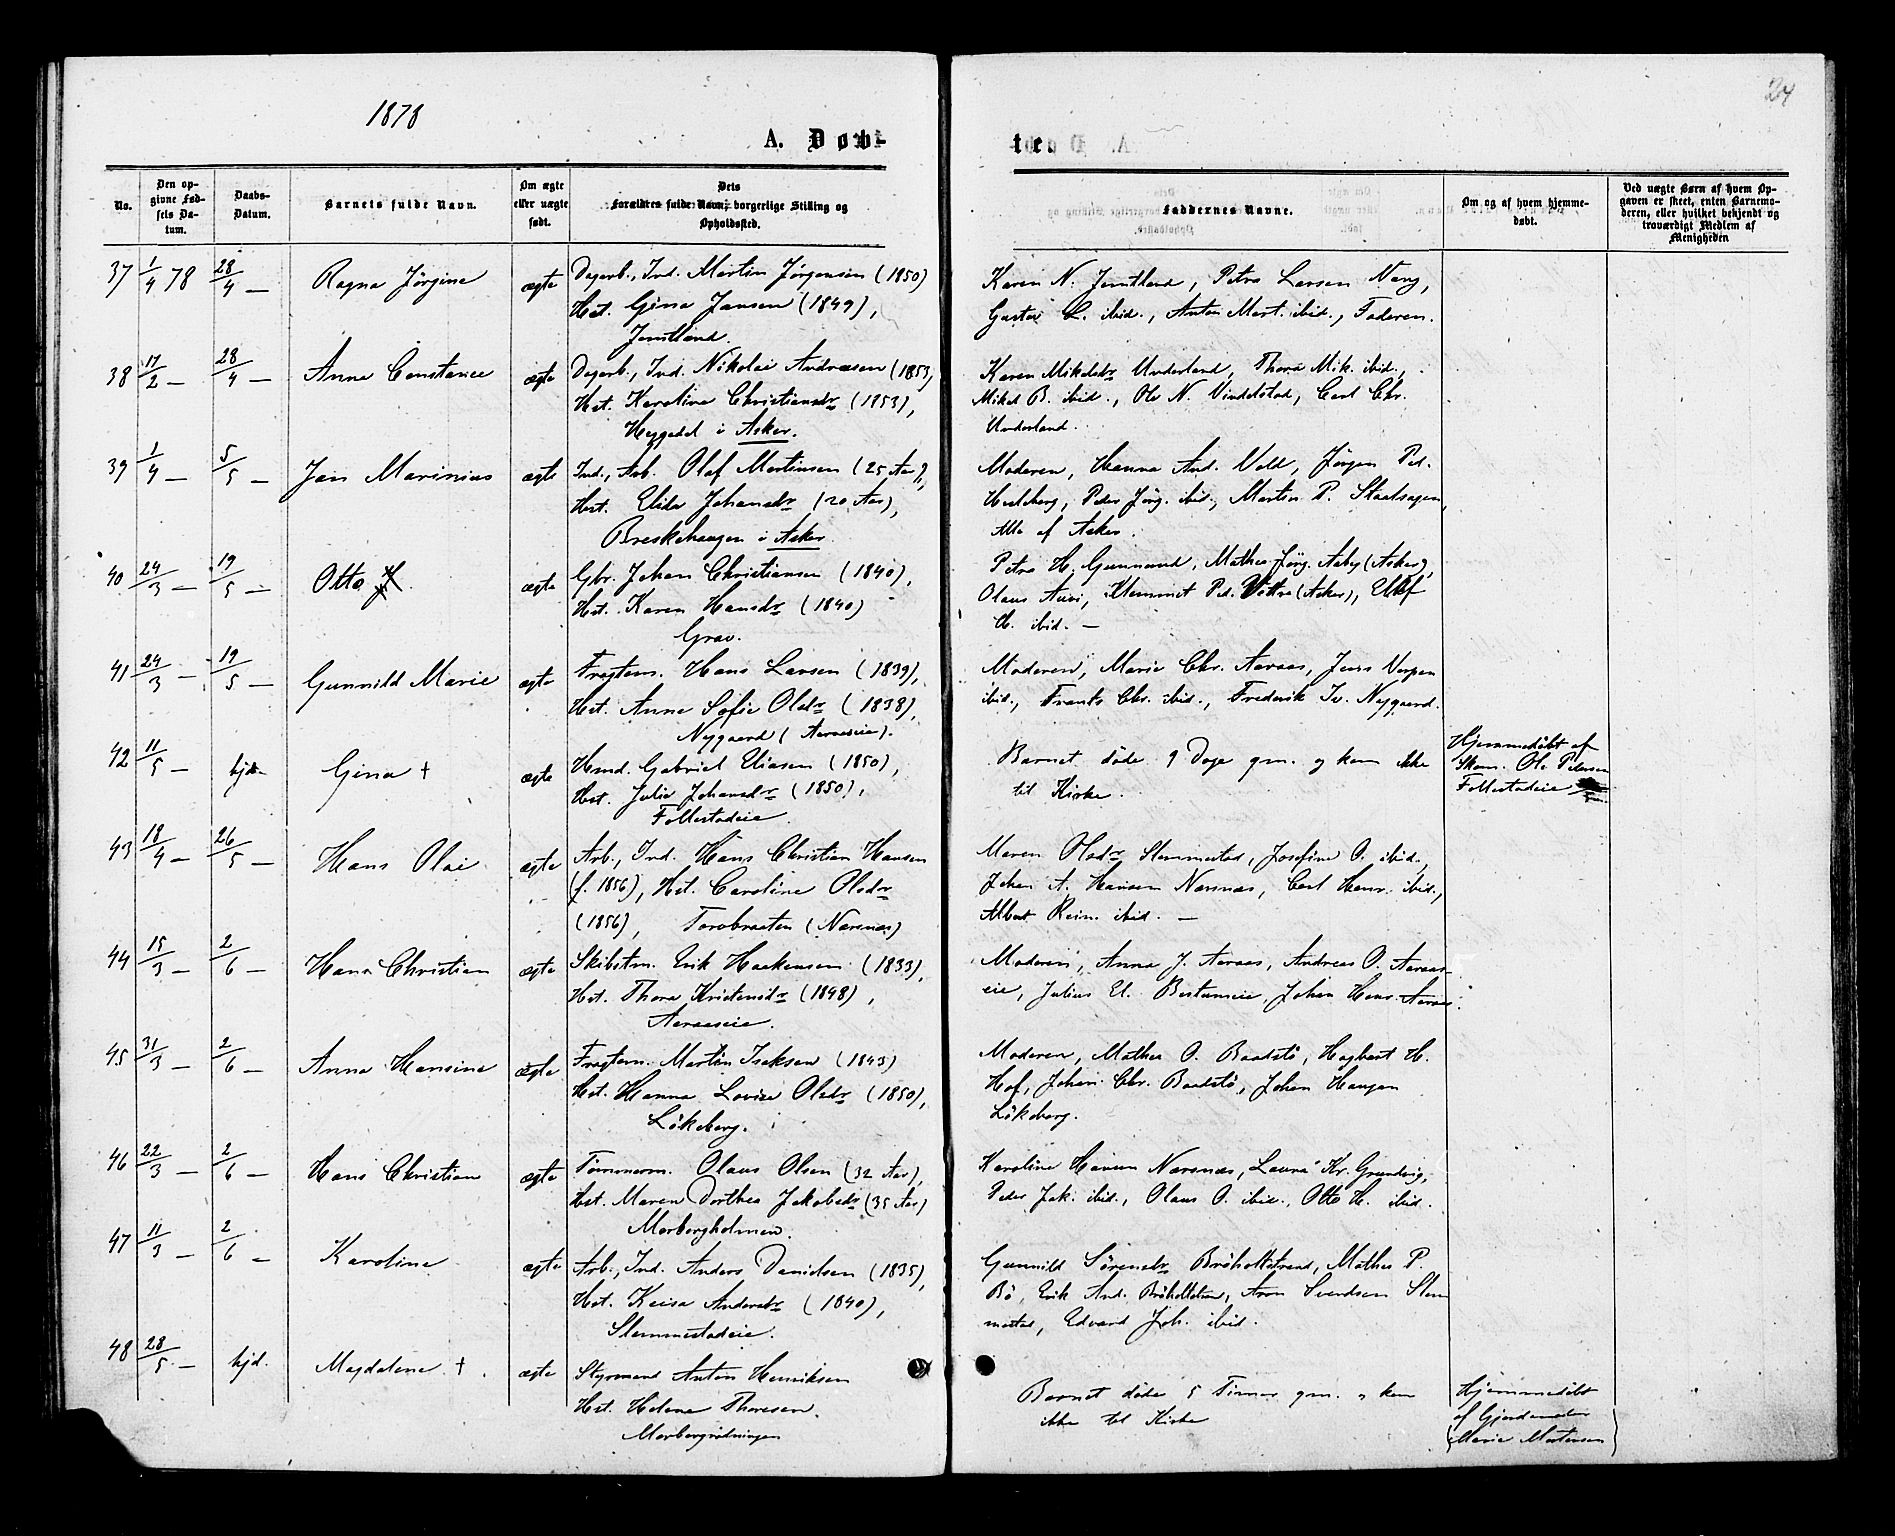 1878
24
A. Døb-
te.
No.
Den op-
givne Fød-
sels Da-
tum.
Daabs-
Datum.
Barnets fulde Navn.
Om ægte
eller uægte
født.
Dets
Forældres fulde Navn, borgerlige Stilling og
Opholdssted.
Faddernes Navne.
Om og af hvem hjemme-
døbt.
Ved uægte Børn af hvem Op-
gaven er skeet, enten Barnemo-
deren, eller hvilket bekjendt og
troværdigt Medlem af
Menigheden
37 1/4 78 28/4 — Ragna Jørgine ægte Dagarb., Ind. Martin Jørgensen (1850)
Hst. Gina Jansen (1849),
Jemtland.
Karen N. Jemtland, Petra Larsen Narg,
Gustav L. ibid., Anton Mart. ibid., Faderen.
38 17/2 — 28/4 — Anna Constance ægte Dagarb., Ind. Nikolai Andreasen (1853,
Hst. Karoline Christiansdr (1853),
Heggedal i Asker.
Karen Mikelsdr Underland, Thora Mik. ibid.,
Mikel B. ibid., Ole N. Vindelstad, Carl Chr.
Underland.
39 1/4 — 5/5 — Jan Marinius ægte Ind., Arb. Olaf Martinsen (25 Aar),
Hst. Elida Johansdr (20 Aar),
Breskehaugen i Asker.
Moderen, Hanna And. Vold, Jørgen Ped.
Hvalsberg, Peder Jörg. ibid., Martin P.
Alle af Asker.
40 24/3 — 19/5 — Otto ægte Gbr. Johan Christiansen (1840),
Hst. Karen Hansdr (1840)
Grav.
Petra H. Gunnerud, Mathea Jörg. Aaby (Asker),
Olaus Klemmet Ped. (Asker),
H. ibid. —
41 24/3 — 19/5 — Gunnild Marie ægte Fragtem. Hans Larsen (1839),
Hst. Anne Sofie Olsdr (1838),
Nygaard (Aaraaseie).
Moderen, Marie Chr. Aaraas, Jens
ibid., Frants Chr. ibid., Frederik Iv. Nygaard.
42 11/5 — hjd. Gina + ægte Hsmd. Gabriel Eliasen (1850),
Hst. Julie Johansdr (1850),
Follestadeie.
Barnet døde 9 Dage gm. og kom ikke
til Kirke.
Hjemmedöbt af
Skom. Ole Petersen
Follestadeie
43 18/4 — 26/5 — Hans Olai ægte Arb., Ind. Hans Christian Hansen
(f. 1856), Hst. Caroline Olsdr
(1856), Torvbraaten (Nærsnæs)
Maren Olsdr Slemmestad, Josefine O. ibid.,
Johan A. Hansen Nærsnæs, Carl Hans. ibid.,
Albert Rein. ibid. —
44 15/3 — 2/6 — Hans Christian ægte Skibstm. Erik Haakensen (1833),
Hst. Thora Kristensdr (1848),
Aaraaseie.
Moderen, Anna J. Aaraas, Andreas O. Aaraas-
eie, Julius El. Johan Hans. Aaraas.
45 31/3 — 2/6 — Anna Hansine ægte Fragtem. Martin Isaksen (1843)
Hst. Hanna Lovise Olsdr (1850),
Lökeberg.
Moderen, Mathea O. Baadstö, Hagbart H.
Hof, Johan Chr. Baadstö, Johan Haugen
Lökeberg.
46 22/3 — 2/6 — Hans Christian ægte Tömmerm. Olaus Olsen (32 Aar),
Hst. Maren Dorthea Jakobsdr (35 Aar)
Morbergholmen.
Karoline Hansen Nærsnæs, Laura Kr. Grundvig,
Peder Jak. ibid., Olaus O. ibid., Otto H. ibid.
47 11/3 — 2/6 — Karoline ægte Arb., Ind. Anders Danielsen (1835),
Hst. Keisa Andersdr (1840),
Slemmestadeie.
Gunnild Sörensdr Bröholtstrand, Mathea P.
Bö, Erik And. Bröholtstran, Aron Svendsen Slem
mestad, Edvard Joh. ibid.
48 28/5 — hjd. Magdalena + ægte Styrmand Anton Henriksen
Hst. Helene Thoresen.
Morbergrödningen
Barnet döde 5 Timer gm. og kom
ikke til Kirke
Hjemmedöbt
af Gjordemoder
(Marie Martensen)